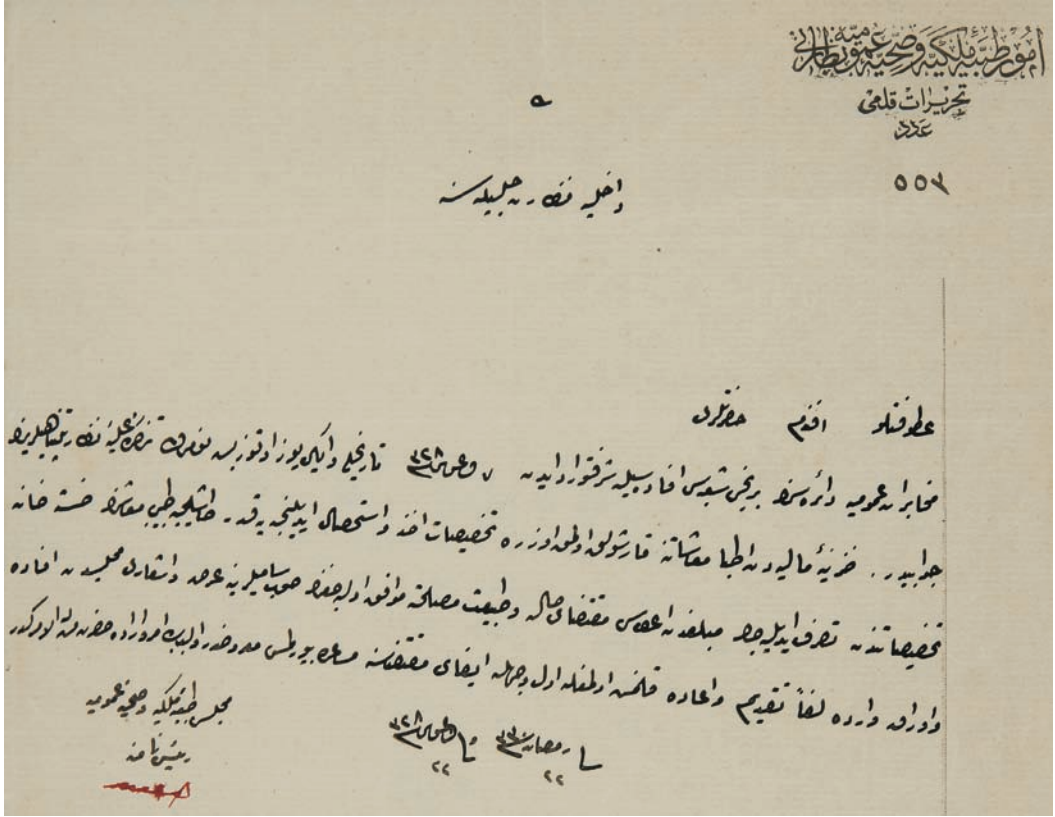 امور طبیهٔ ملکیه و صحیهٔ عمومیه نظارتی
تحریرات قلمی
عدد
٥٥٣
داخلیه نظارت جلیله‌سنه
عطوفتلو افندم حضرتلری
مخابرات عمومیه دائره‌سی برنجی شعبه‌سی افاده‌سیله شرفوارد ایدن ٣٢٨ تاریخلی و ایکی یوز اوتوز بش نومرولی تذکرهٔ علیهٔ نظارتپناهیلرینه
جوابیدر. خزینهٔ مالیه‌دن اطبا معاشاتنه قارشولق اولمق اوزره تخصیصات اخذ و استحصال ایدیلنجیه قدر طبیب معاشنک خسته خانه
تخصیصاتندن تصرف ایدیله‌جک مبلغدن اعطاسی مقتضای حال و طبیعت مصلحته موافق اوله‌جغنک صوب سامیلرینه عرض و اشعاری مجلسدن افاده
و اوراق وارده لفاً تقدیم و اعاده قلنمش اولمغله اول وجهله ایفای مقتضاسنه مساعده بیورلمسی بابنده امر و اراده حضرت من له الامرکدر
رمضان ٣٣٠ ٣٢٨
٢٢ ٢٢
مجلس طبیهٔ ملکیه و صحیهٔ عمومیه
رئیس ثانیسی